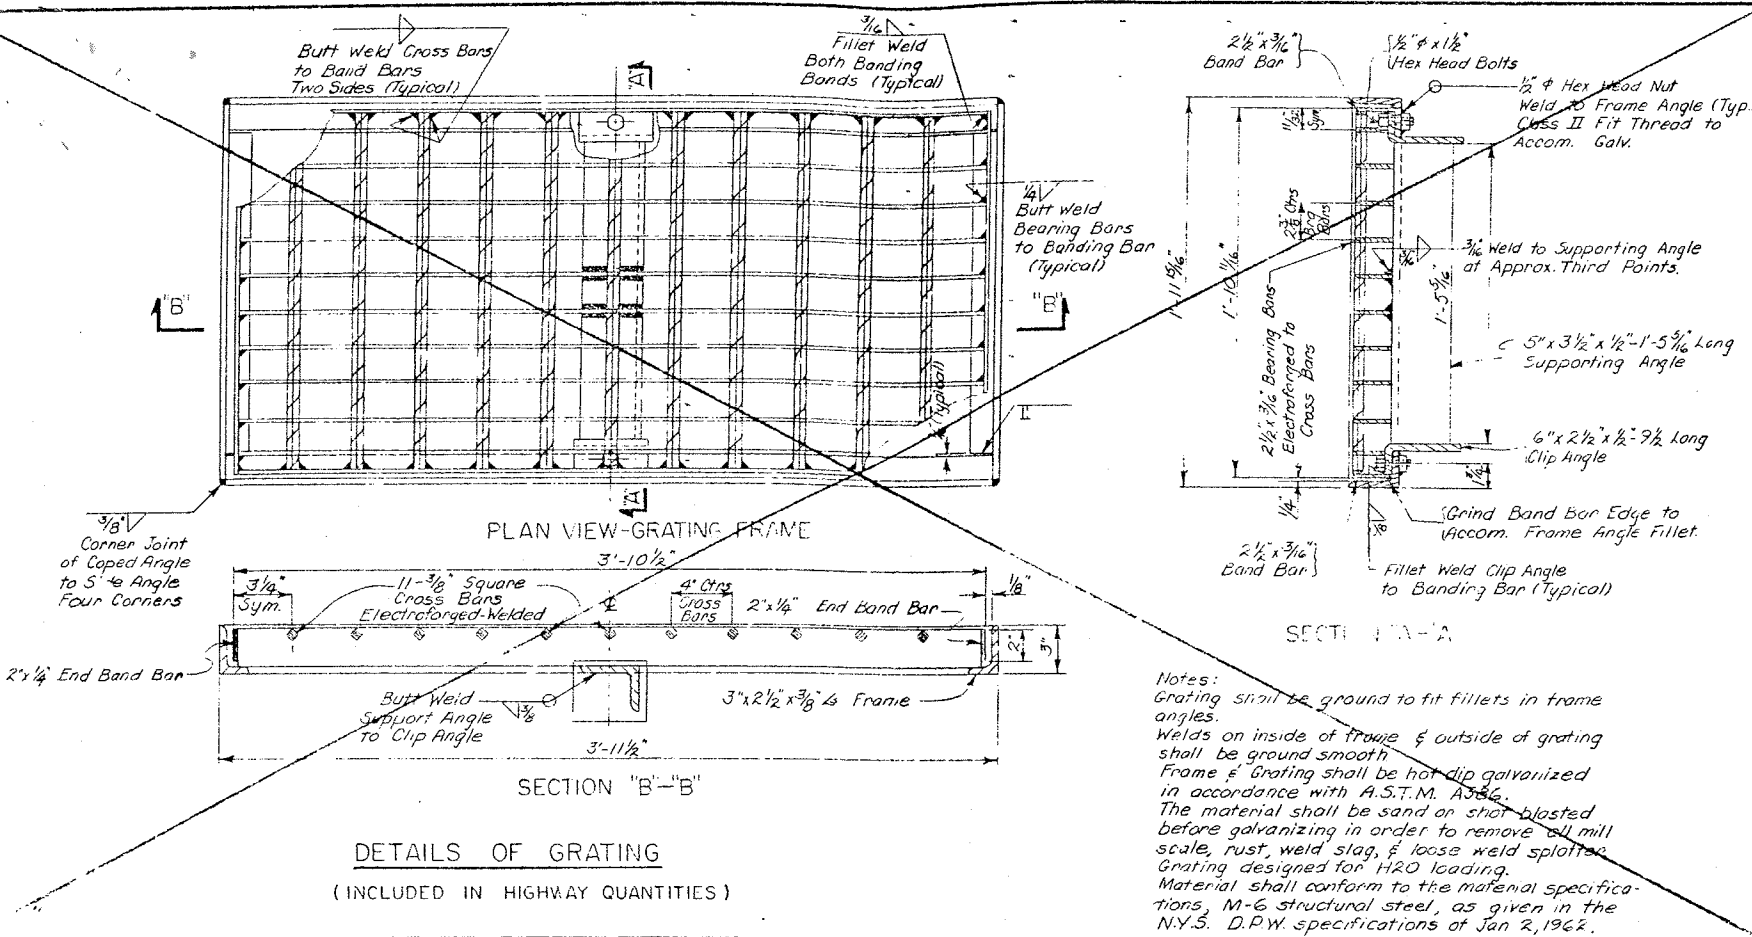 Butt Weld Cross Bars
to Band Bars
Two Sides (Typical)
3/16"
Fillet Weld
Both Banding
Bands (Typical)
"A"
1/4
Butt Weld
Bearing Bars
to Banding Bar
(Typical)
"B"
"B"
(Typical)
"A"
3/8"
Corner Joint
of Coped Angle
to Angle
Four Corners
PLAN VIEW-GRATING FRAME
3'-10 1/2"
3 1/4"
Sym.
11-3/8" Square
Cross Bars
Electroforged-Welded
4" Ctrs
Cross
Bars
2"x1/4" End Band Bar
1/8"
2"
3"
2"x1/4" End Band Bar
Butt Weld
Support Angle
to Clip Angle
3/8
3"x2 1/2"x3/8" Frame
3'-11 1/2"
SECTION "B"-"B"
DETAILS OF GRATING
(INCLUDED IN HIGHWAY QUANTITIES)
2 1/2"x3/16"
Band Bar
1/2" φ x 1 1/2"
Hex Head Bolts
1/2" φ Hex Head Nut
Weld to Frame Angle (Typ.
Class II Fit Thread to
Accom. Galv.
Sym.
1'-11 15/16"
1'-10 11/16"
Ctrs
Brg
Bars
2 1/2"x3/16" Bearing Bars
Electroforged to
Cross Bars
3/16" Weld to Supporting Angle
at Approx. Third Points.
1'-5 5/16"
5"x3 1/2"x1/2"-1'-5 5/16" Long
Supporting Angle
6"x2 1/2"x1/2"-9 1/2 Long
Clip Angle
1/4"
1 3/4"
Grind Band Bar Edge to
Accom. Frame Angle Fillet.
2 1/2"x3/16"
Band Bar
1/8
Fillet Weld Clip Angle
to Banding Bar (Typical)
Notes:
Grating shall be ground to fit fillets in frame
angles.
Welds on inside of frame & outside of grating
shall be ground smooth
Frame & Grating shall be hot dip galvanized
in accordance with A.S.T.M. A386.
The material shall be sand or shot blasted
before galvanizing in order to remove all mill
scale, rust, weld slag, & loose weld splatter.
Grating designed for H20 loading.
Material shall conform to the material specifica-
tions, M-6 structural steel, as given in the
N.Y.S. D.P.W. specifications of Jan 2, 1962.